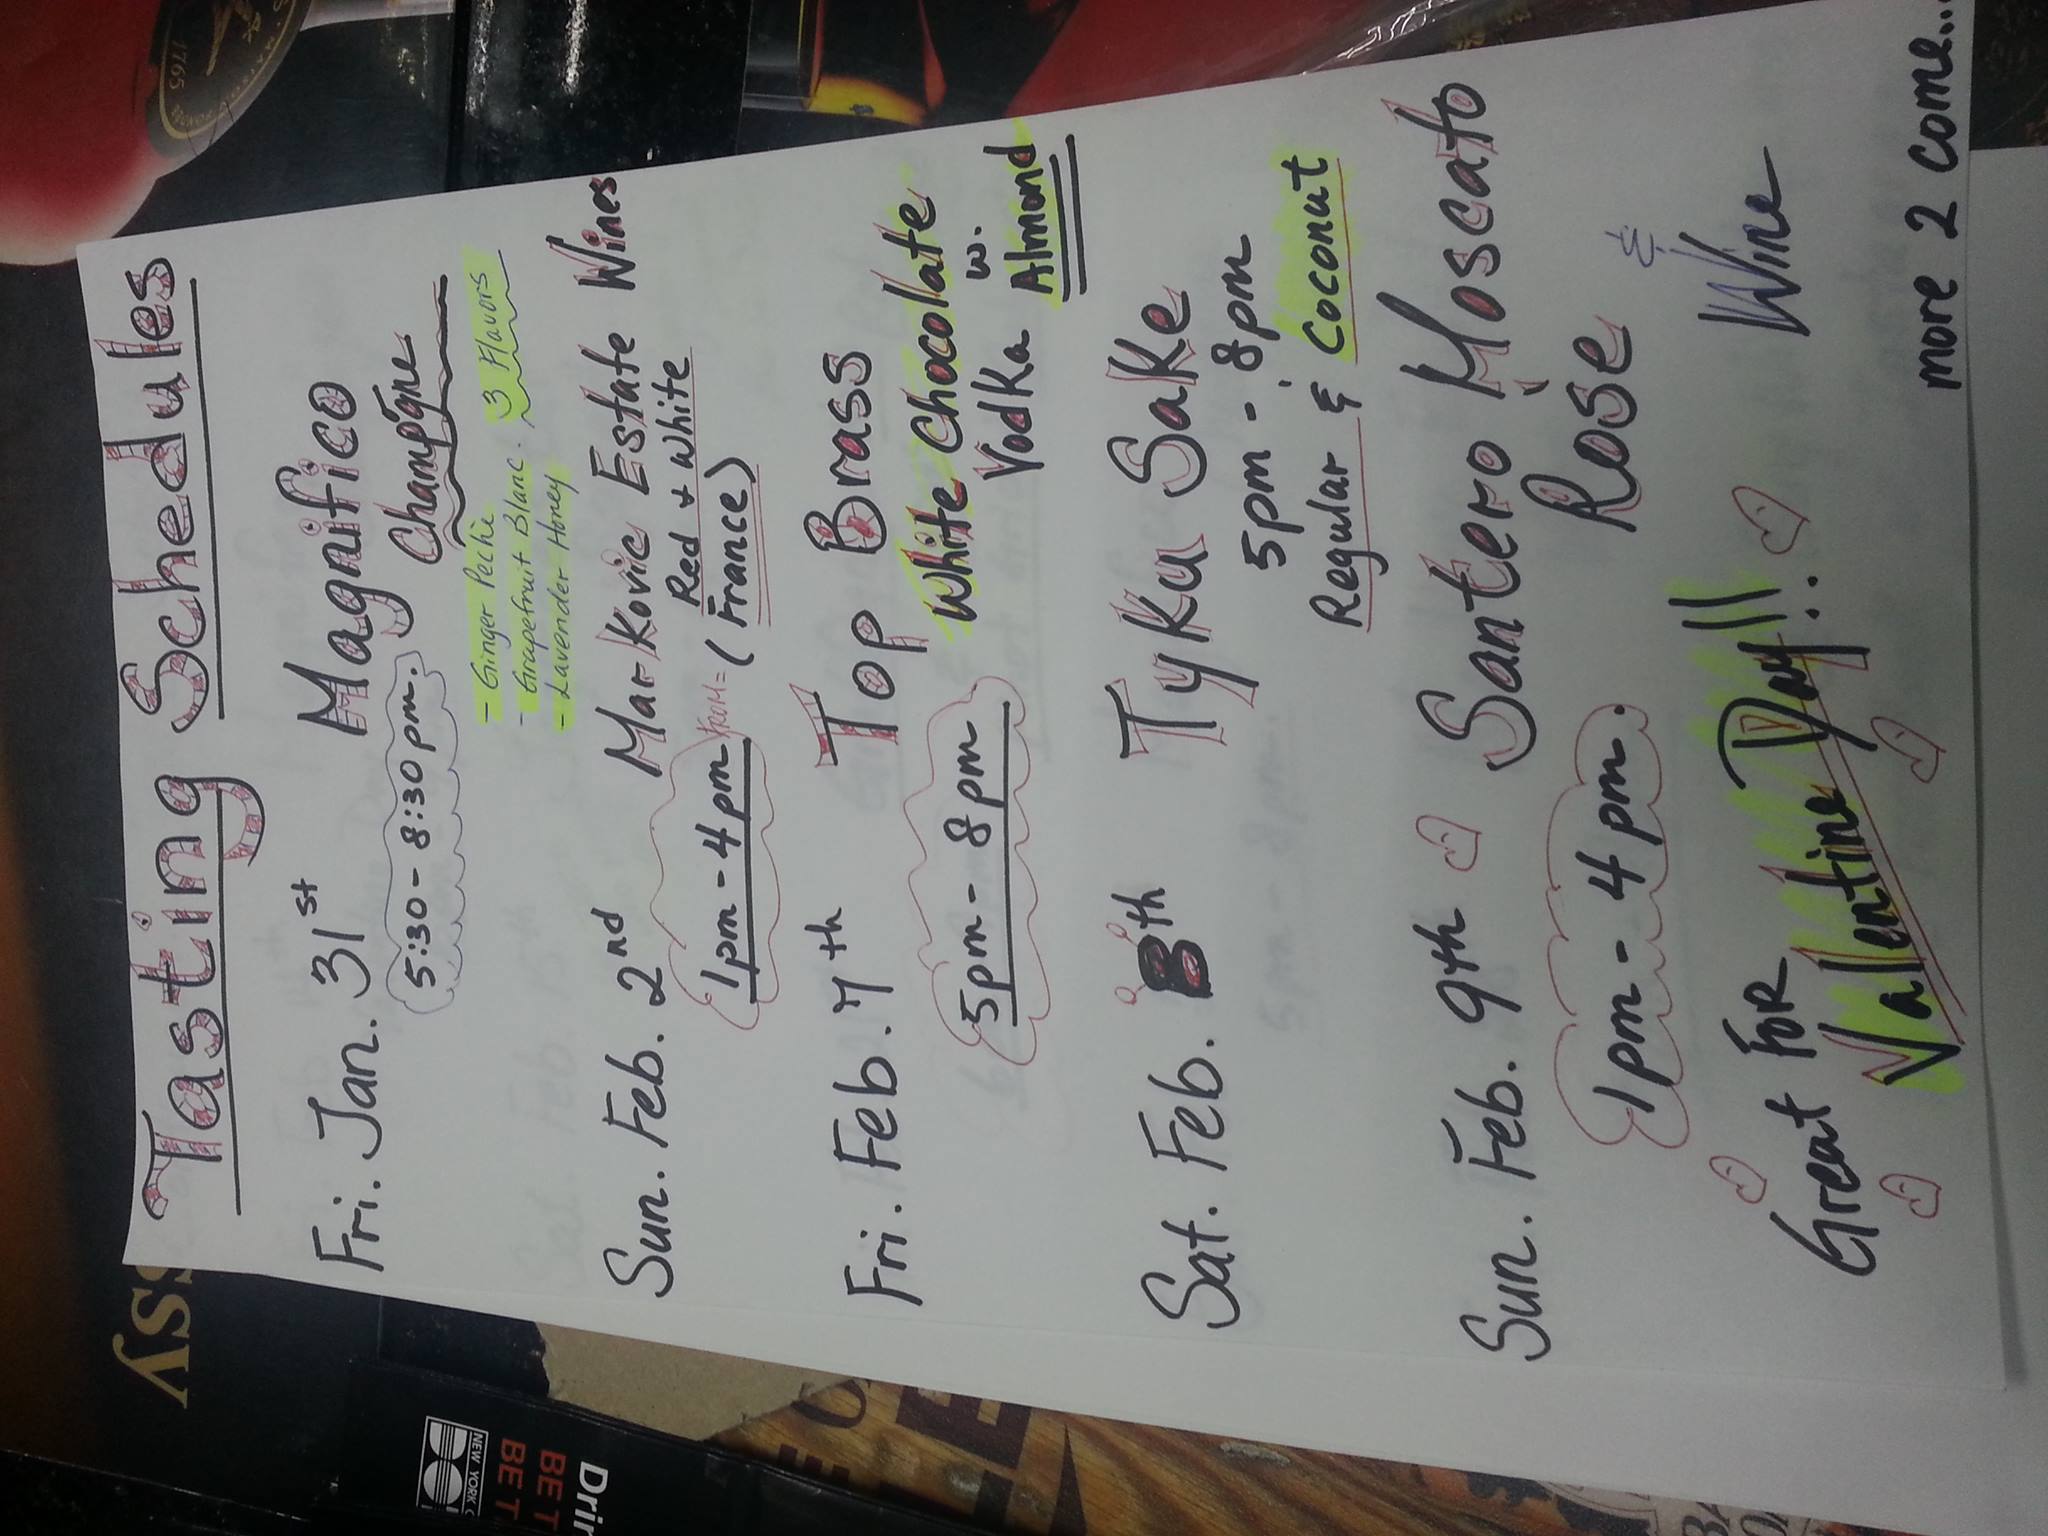 Tasting Schedules
Fri. Jan. 31st Magnifico
5:30 - 8:30 pm. Champagne
- Ginger Pechè
- Grapefruit Blanc. 3 Flavors
- Lavender Honey
Sun. Feb. 2nd MarKovic Estate Wines
1pm - 4pm FROM = Red + White
(France)
Fri. Feb. 7th Top Brass
5pm - 8pm White Chocolate
Vodka w. Almond
Sat. Feb. 8th Tyku Sake
5pm - 8pm
Regular & Coconut
Sun. Feb. 9th Santero Moscato
1pm - 4pm. Rose &
Wine
Great FOR
Valentine Day!!
more 2 come...
1765
SSY
NEW YORK
Drin
BE T
BE T